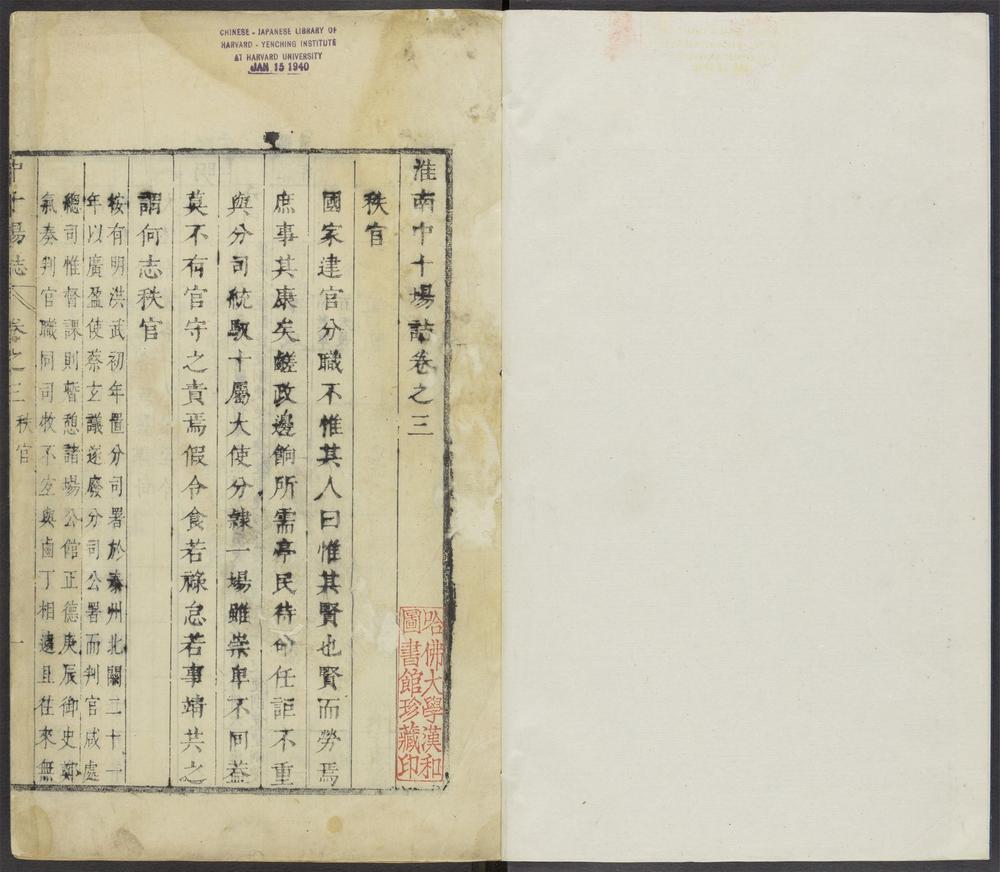 CHINESE - JAPANESE LIBRARY OF
HARVARD - YENCHING INSTITUTE
AT HARVARD UNIVERSITY
JAN 15 1940
淮南中十場誌卷之三
秩官
國家建官分職不惟其人曰惟其賢也賢而勞焉
庶事其康矣鹺政邊餉所需亭民待命任詎不重
與分司統馭十屬大使分隸一場雖崇卑不同蓋
莫不有官守之責焉假令食若祿怠若事靖共之
謂何志秩官
按有明洪武初年置分司署於泰州北關二十一
年以廣盈使蔡玄議遂廢分司公署而判官咸處
總司惟督課則暫憩諸場公館正德庚辰御史
氣奏判官職同司牧不宜與鹵丁相遠且往來無
中十場志
卷之三
秩官
一
哈佛大學漢和
圖書館珍藏印